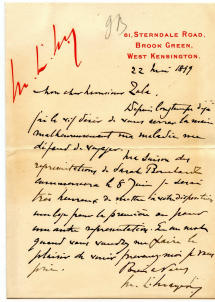 93
M. L. Mayer
61, STERNDALE ROAD,
BROOK GREEN,
WEST KENSINGTON.
22 Mai 1899
Mon cher Monsieur Zola.
Depuis longtemps déjà
j'ai le vif désir de vous serrer la main
malheureusement ma maladie me
défend de voyager.
Ma saison des
représentations de Sarah Bernhardt
commencera le 8 Juin je serai
très heureux de mettre à votre disposition
une loge pour la première ou pour
une autre représentation. En un mot
quand vous voudrez me faire le
plaisir de venir prévenez moi je vous
prie.
M. L. Mayer